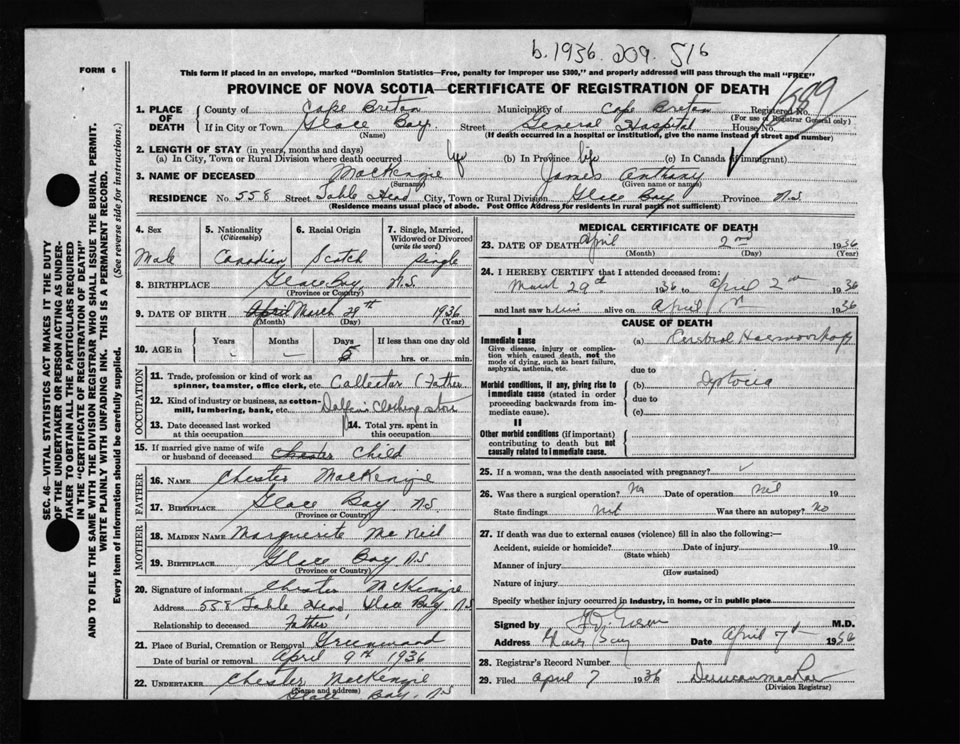 b.1936. 209. 516
FORM 6
This form if placed in an envelope, marked "Dominion Statistics—Free, penalty for improper use $300," and properly addressed will pass through the mail "FREE"
PROVINCE OF NOVA SCOTIA—CERTIFICATE OF REGISTRATION OF DEATH
1. PLACE OF DEATH County of Cape Breton Municipality of Cape Breton Registered No.
(For use of Registrar General only)
If in City or Town Glace Bay Street General Hospital House No.
(Name) (If death occurred in a hospital or institution, give the name instead of street and number)
2. LENGTH OF STAY (in years, months and days)
(a) In City, Town or Rural Division where death occurred life (b) In Province life (c) In Canada (if immigrant)
3. NAME OF DECEASED MacKenzie James Anthony
(Surname) (Given name or names)
RESIDENCE No. 558 Street Table Head City, Town or Rural Division Glace Bay Province N.S.
(Residence means usual place of abode. Post Office Address for residents in rural parts not sufficient)
SEC. 46—VITAL STATISTICS ACT MAKES IT THE DUTY
OF THE UNDERTAKER OR PERSON ACTING AS UNDERTAKER
TO OBTAIN ALL THE PARTICULARS REQUIRED
IN THE "CERTIFICATE OF REGISTRATION OF DEATH"
AND TO FILE THE SAME WITH THE DIVISION REGISTRAR WHO SHALL ISSUE THE BURIAL PERMIT.
WRITE PLAINLY WITH UNFADING INK. THIS IS A PERMANENT RECORD.
Every item of information should be carefully supplied. (See reverse side for instructions.)
4. Sex 5. Nationality 6. Racial Origin 7. Single, Married,
(Citizenship) Widowed or Divorced
(write the word)
Male Canadian Scotch Single
8. BIRTHPLACE Glace Bay, N.S.
(Province or Country)
9. DATE OF BIRTH April March 29th 1936
(Month) (Day) (Year)
10. AGE in Years Months Days If less than one day old
– – 5 hrs. or min.
OCCUPATION
11. Trade, profession or kind of work as
spinner, teamster, office clerk, etc. Collector (Father
12. Kind of industry or business, as cotton-
mill, lumbering, bank, etc. Clothing store
13. Date deceased last worked
at this occupation
14. Total yrs. spent in
this occupation
15. If married give name of wife
or husband of deceased Chester Child
FATHER
16. NAME Chester MacKenzie
17. BIRTHPLACE Glace Bay N.S.
(Province or Country)
MOTHER
18. MAIDEN NAME Marguerite McNeil
19. BIRTHPLACE Glace Bay N.S.
(Province or Country)
20. Signature of informant Chester McKenzie
Address 558 Table Head, Glace Bay N.S.
Relationship to deceased Father
21. Place of Burial, Cremation or Removal Greenwood
Date of burial or removal April 9th 1936
22. UNDERTAKER Chester MacKenzie
(Name and address)
Glace Bay, N.S.
MEDICAL CERTIFICATE OF DEATH
23. DATE OF DEATH April 2nd 1936
(Month) (Day) (Year)
24. I HEREBY CERTIFY that I attended deceased from:
March 29th 1936 to April 2nd 1936
and last saw him alive on April 1936
CAUSE OF DEATH
I
Immediate cause (a) Cerebral Haemorrhage
Give disease, injury or complication
which caused death, not the
mode of dying, such as heart failure,
asphyxia, asthenia, etc.
due to
Morbid conditions, if any, giving rise to
immediate cause (stated in order
proceeding backwards from immediate
cause).
(b) Dystocia
due to
(c)
II
Other morbid conditions (if important)
contributing to death but not
causally related to immediate cause.
25. If a woman, was the death associated with pregnancy?
26. Was there a surgical operation? No Date of operation Nil 19
State findings Was there an autopsy? No
27. If death was due to external causes (violence) fill in also the following:—
Accident, suicide or homicide? Date of injury 19
(State which)
Manner of injury
(How sustained)
Nature of injury
Specify whether injury occurred in industry, in home, or in public place
Signed by M.D.
Address Glace Bay Date April 7th 1936
28. Registrar's Record Number
29. Filed April 7 1936 Duncan MacRae
(Division Registrar)